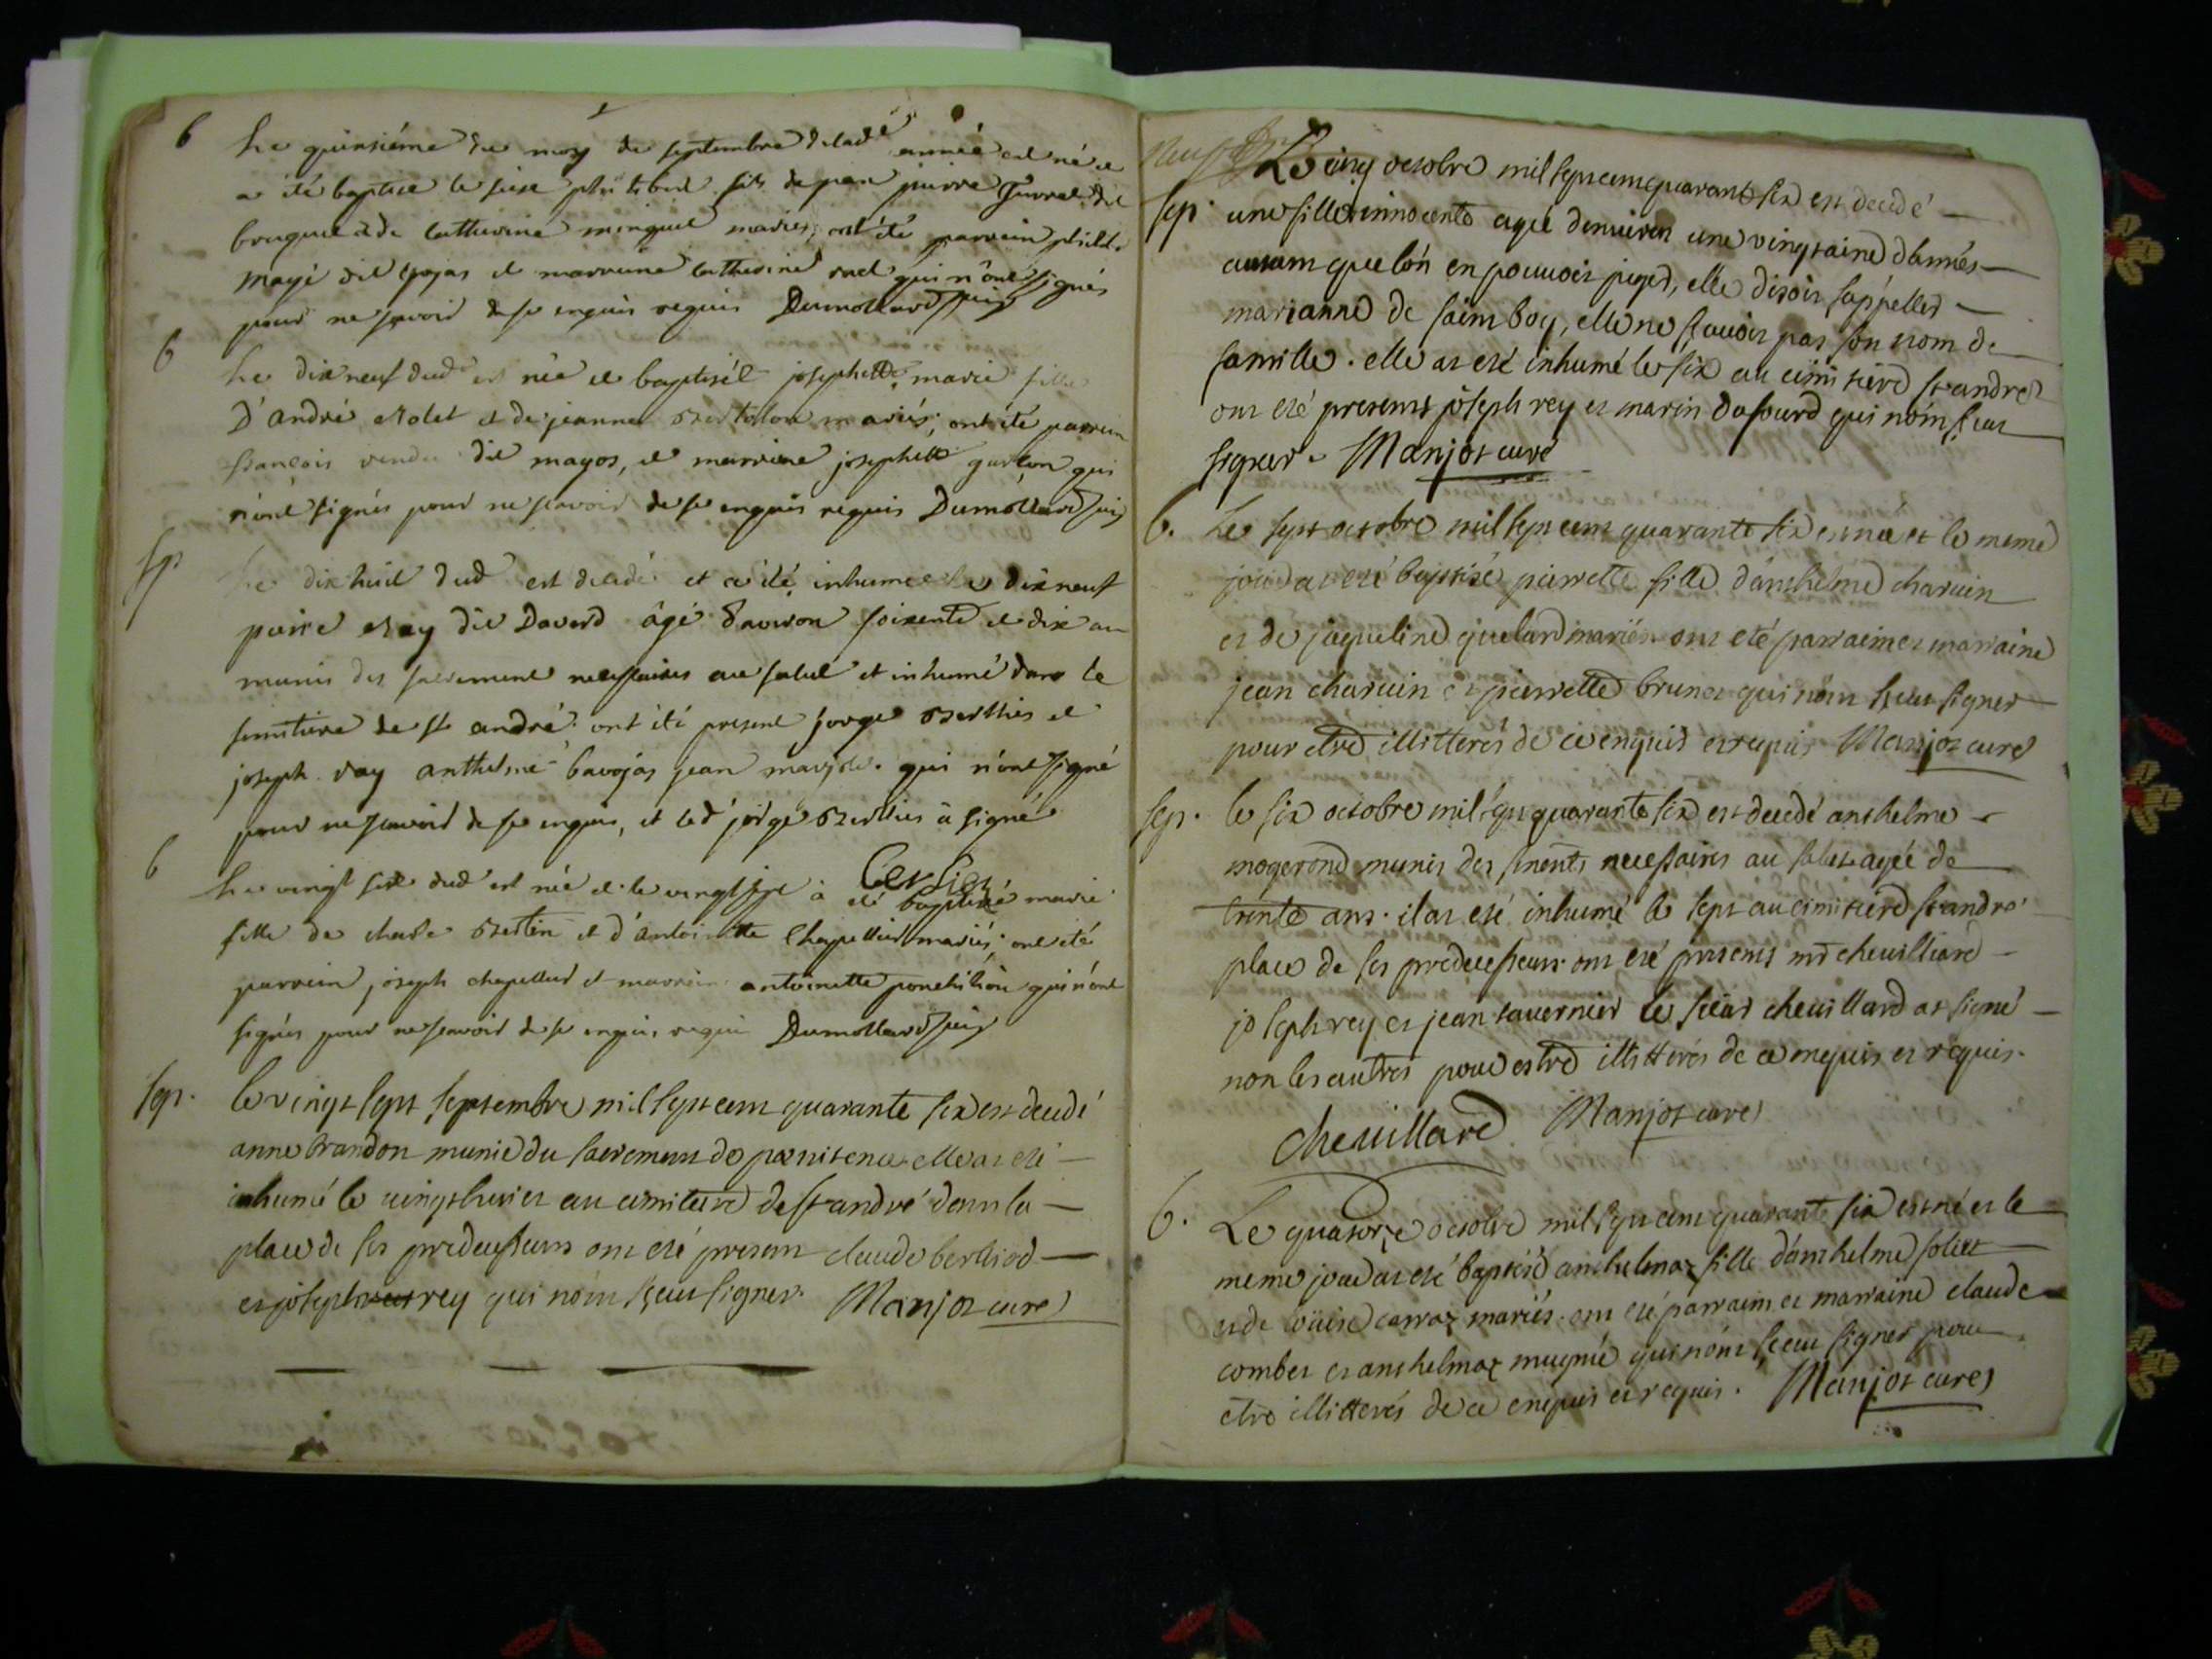 b Le quinsiéme du moy de septembre deladᵉ année est né et
a été baptisé le seise philibert fils de jean pierre
et de Catherine minguet mariés, ont été parrain philib.
mayé dit et marraine Catherine qui n'ont signés
pour ne scavoir de ce enquis requis Dumollard
b Le dix neuf dud est née et baptisée josephette marie fille
D'andré et de jeanne mariés, ont été parrain
françois dit mayos, et marraine josephette qui
n'ont signés pour ne scavoir de ce enquis requis Dumollard
sp Le dix huit dud est decedé et a été inhumé le dix neuf
pierre dit Davard âgé d'environ soixente et dix an
munis des sacrement necessaires au salut et inhumé dans le
simitiere de st andré ont été present jorge Berthier et
joseph ray anthelme bavojas jean qui n'ont signé
pour ne scavoir de ce enquis, et led jorge Berthier à signé
Bertier
b Le vingt six dud est née et le vingt sept à été baptisée marie
fille de charle Bertin et d'antoinette Chapellus mariés, ont été
parrain joseph chapellus et marraine antoinette qui n'ont
signés pour ne scavoir de ce enquis requis Dumollard
sep. le vingt sept septembre mil sept cent quarante six est decedé
anne brandon munie du sacrement de pœnitence elle at eté
inhumé le vingthuict au cimitiere de st andré dans la
place de ses predecesseurs ont eté present claude berthod
et joseph rey qui nont sçeut signer. Manjot curé
Le cinq octobre mil sept cent quarante six est decedé
sep. une fille innocente agée denviron une vingtaine dannés
autant que lon en pouvoit juger, elle disoit sappeller
marianne de , elle ne sçauoit pas son nom de
famille. elle at eté inhumé le six au cimitiere st andre
ont eté presents joseph rey et marin dufourd qui nont sceut
signer. Manjot curé
b. Le sept octobre mil sept cent quarante six est nee et le meme
jour at eté baptisé pierrette fille d'anthelme charuin
et de jaqueline mariés. ont eté parrain et marraine
jean charuin et pierrette brunet qui nont sceut signer
pour etre illitterés de ce enquis et requis Manjot curé
sep. le six octobre mil sept quarante six est decedé anthelme
mogerond munis des sments necessaires au salut agée de
trente ans. il at eté inhumé le sept au cimitiere st andré
place de ses predecesseurs. ont eté presents mr cheuilliard
joseph rey et jean tauernier le sieur cheuillard at signé
non les autres pour estre illitterés de ce enquis et requis.
cheuillard Manjot curé
b. Le quatorze octobre mil sept cent quarante six est né et le
meme jour at eté baptisé anthelmaz fille d'anthelme
et de loüise carraz mariés. ont eté parrain et marraine claude
combet et anthelmaz mugnié qui nont sceu signer pour
etre illitterés de ce enquis et requis. Manjot curé